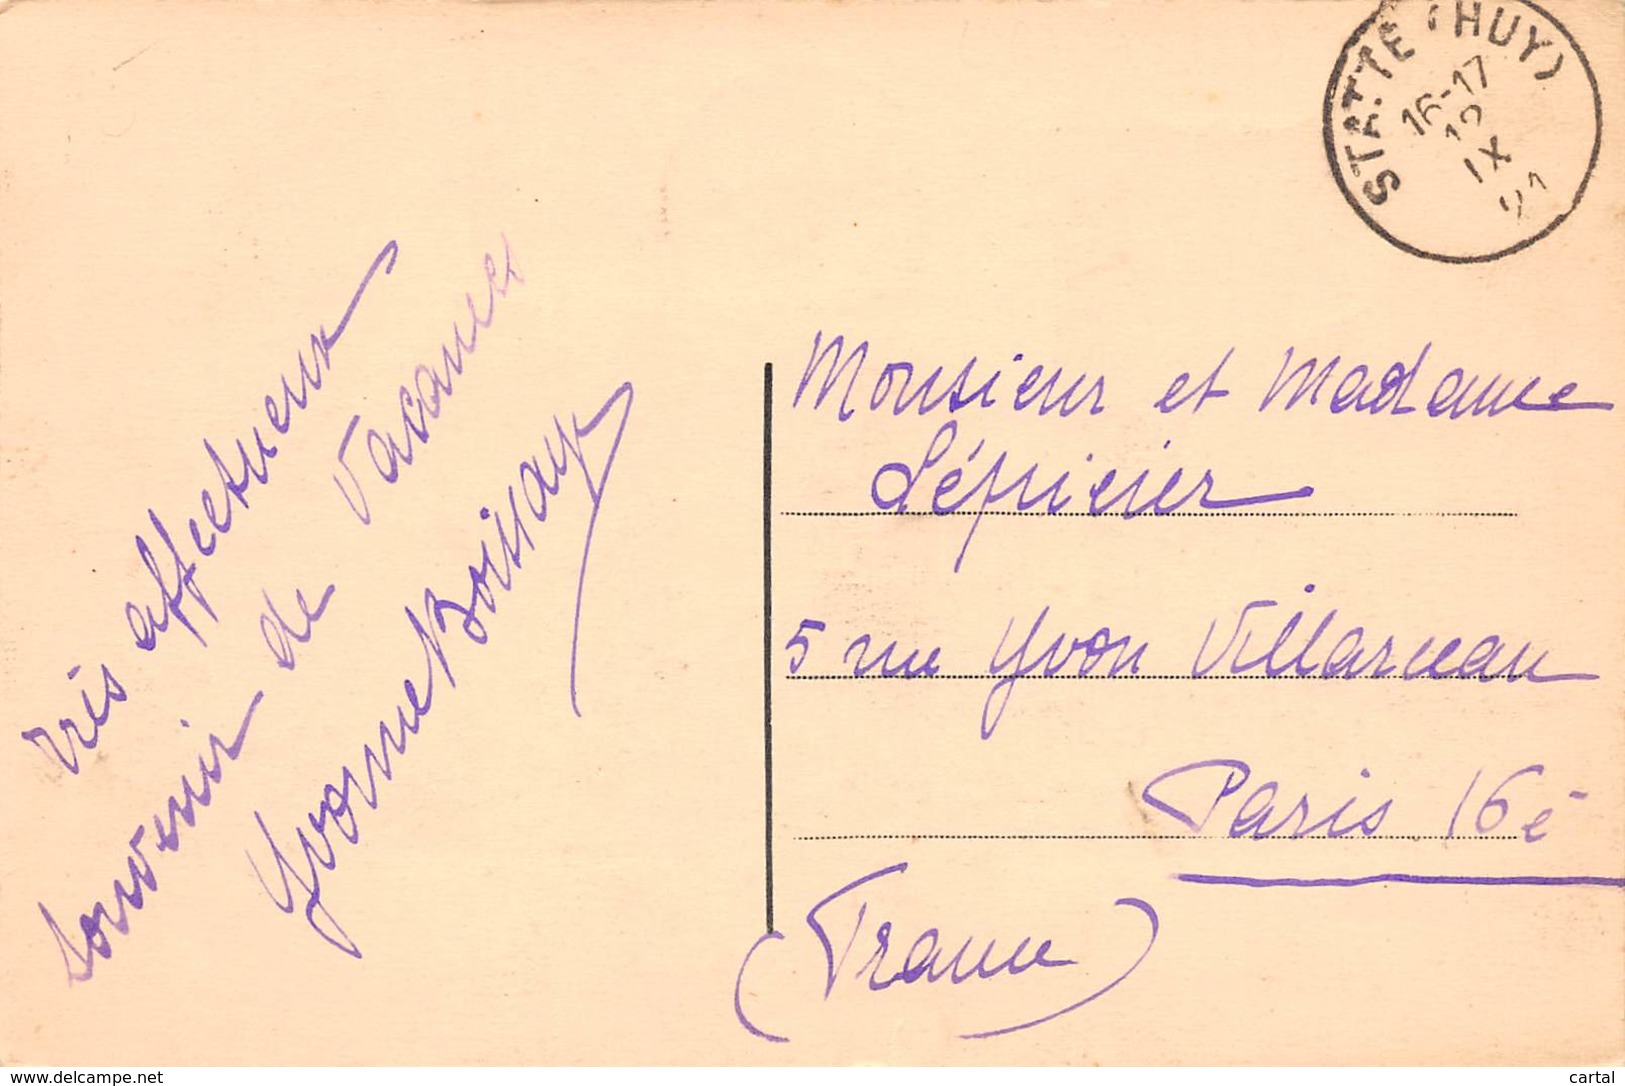 STATTE (HUY)
16-17
12
IX
Très affectueux
souvenir de Vacances
Yvonne Boissay
Monsieur et Madame
Lépicier
5 rue Yvon Villarceau
Paris 16è
(France)
www.delcampe.net
cartal